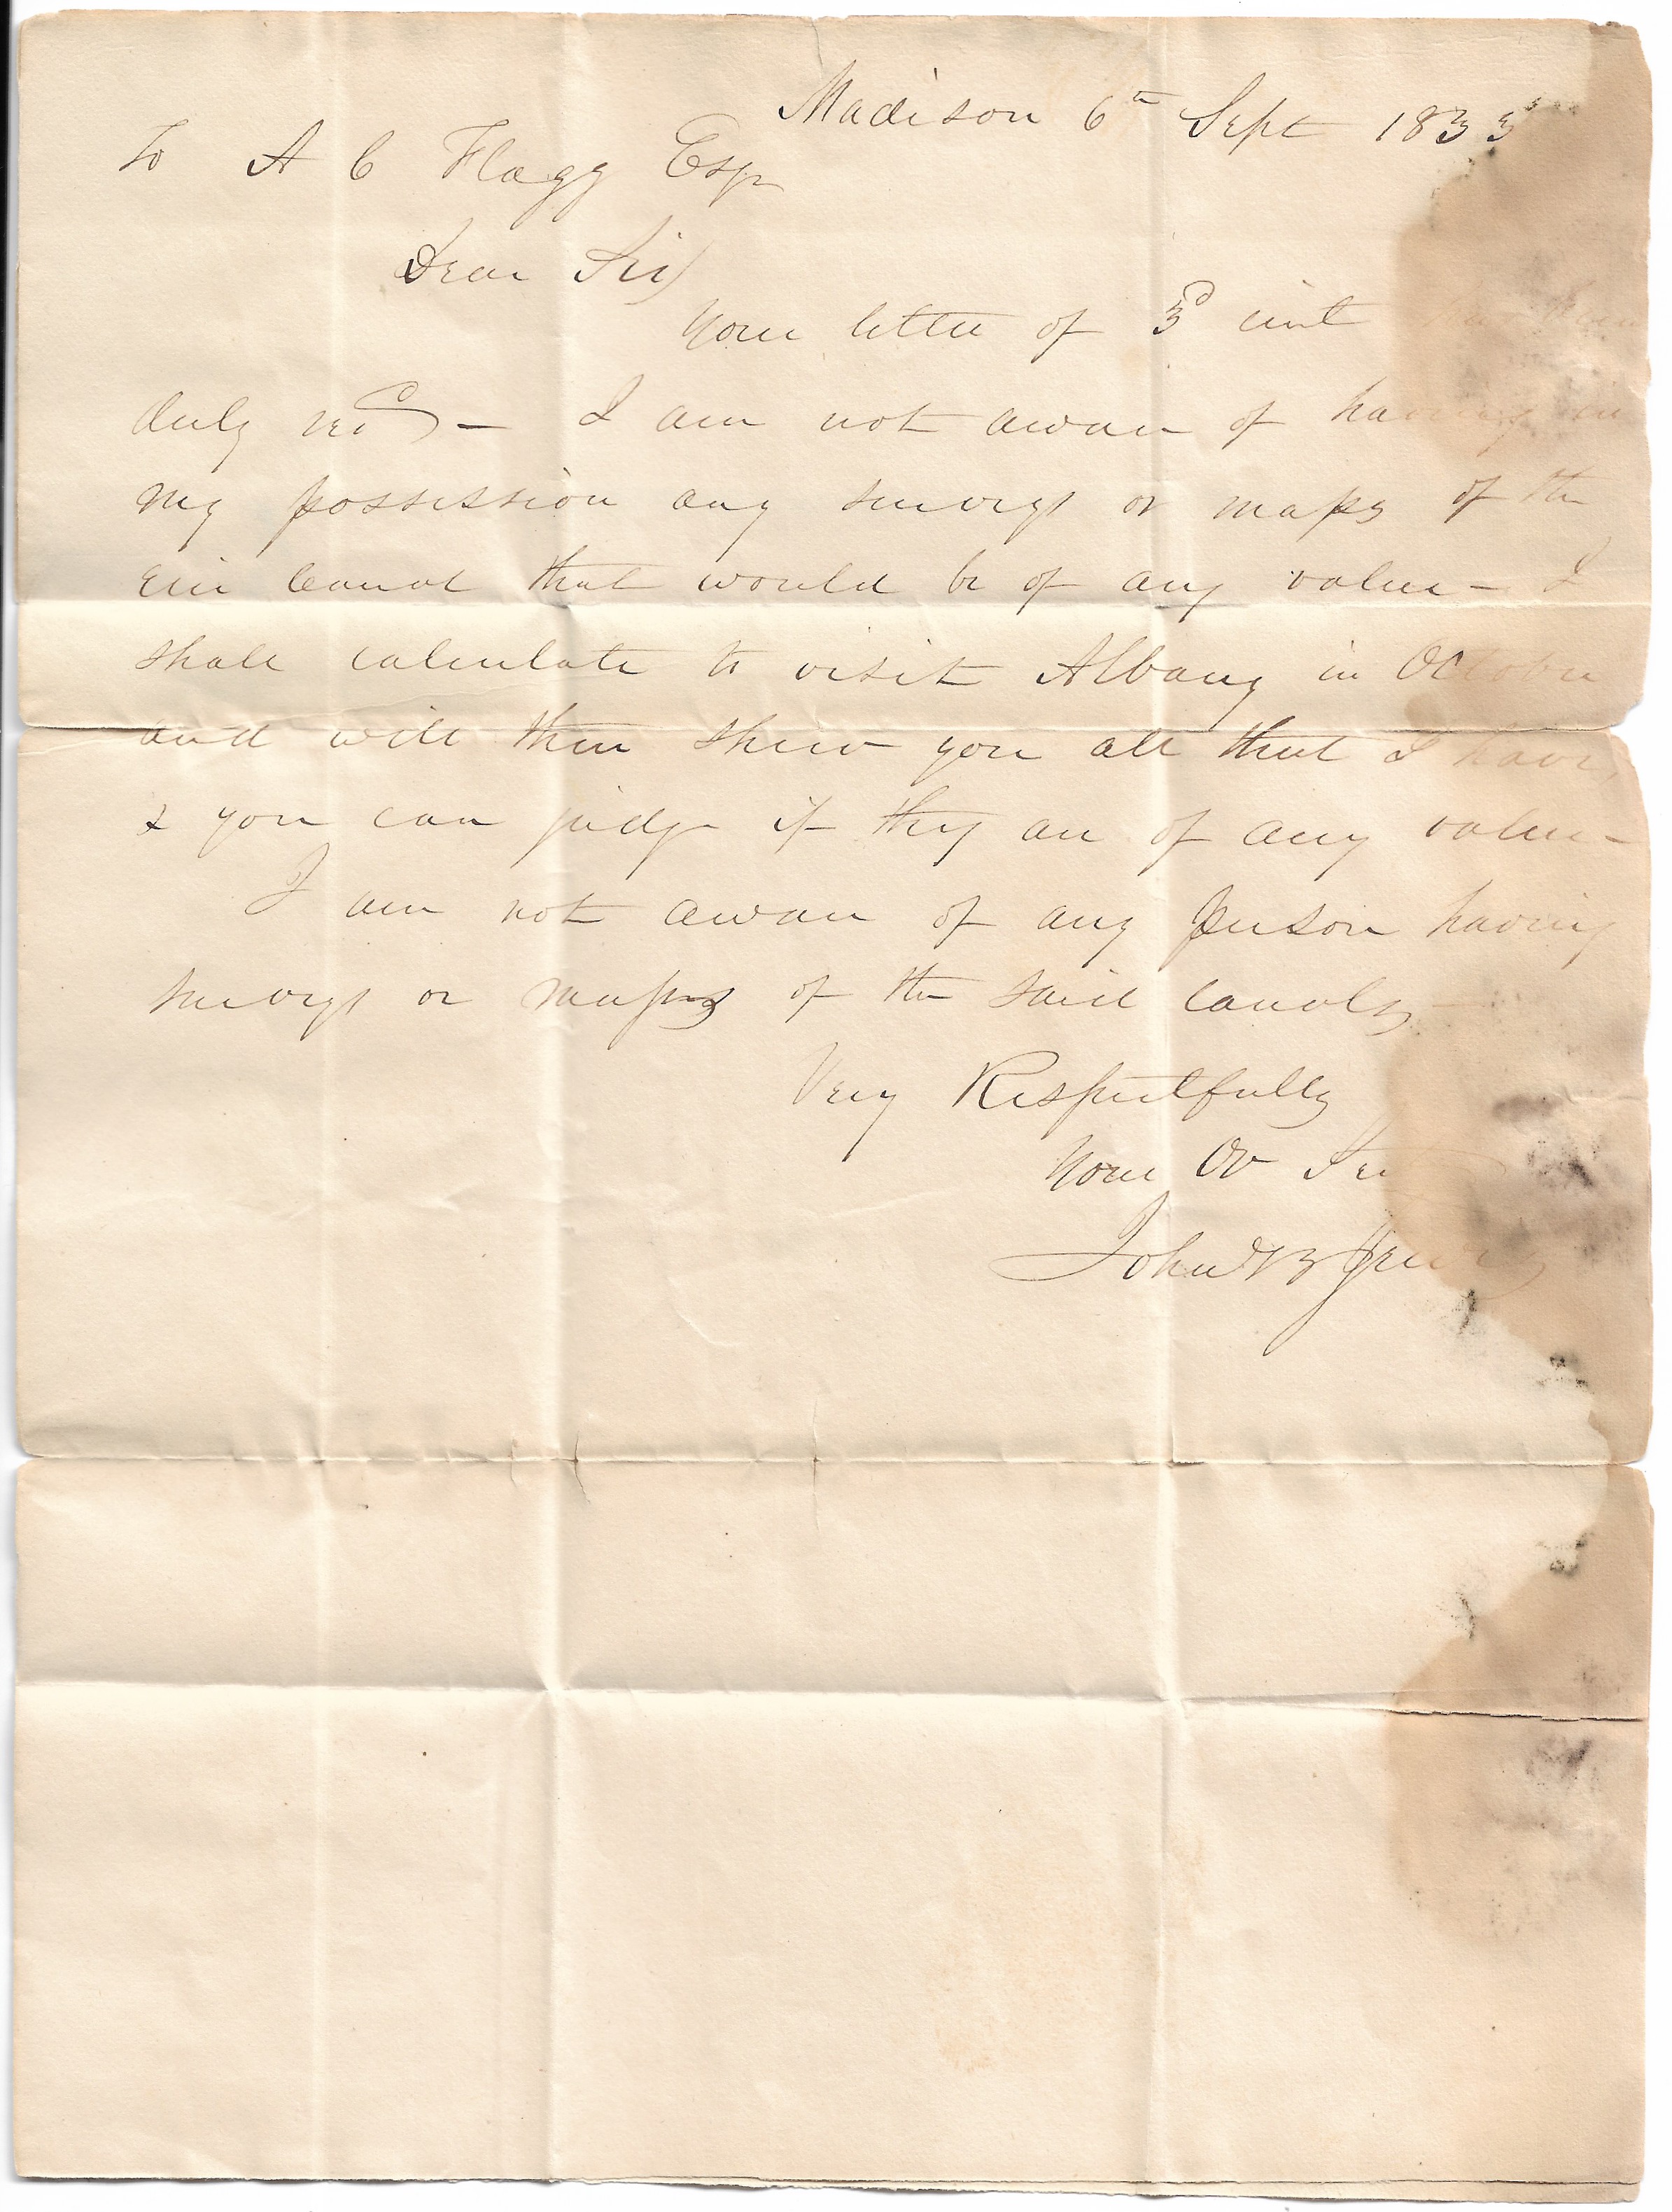 Madison 6th Sept 1833
To A C Flagg Esqr
Dear Sir
Your letter of 3d inst
duly recd — I am not aware of having in
my possession any surveys or maps of the
Erie Canal that would be of any value — I
shall calculate to visit Albany in October
and will then shew you all that I have,
& you can judge if they are of any value —
I am not aware of any person having
surveys or maps of the said canals —
Very Respectfully
Your Ob Ser
John B Jervis